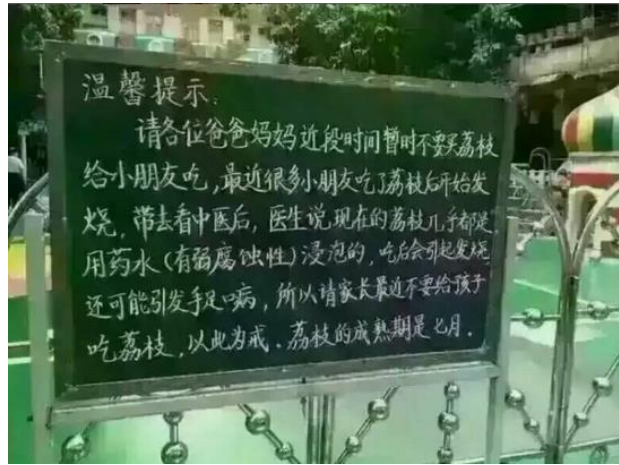 温馨提示:
请各位爸爸妈妈近段时间暂时不要买荔枝
给小朋友吃,最近很多小朋友吃了荔枝后开始发
烧,带去看中医后,医生说现在的荔枝几乎都是
用药水(有弱腐蚀性)浸泡的,吃后会引起发烧
还可能引发手足口病,所以请家长最近不要给孩子
吃荔枝,以此为戒.荔枝的成熟期是七月.